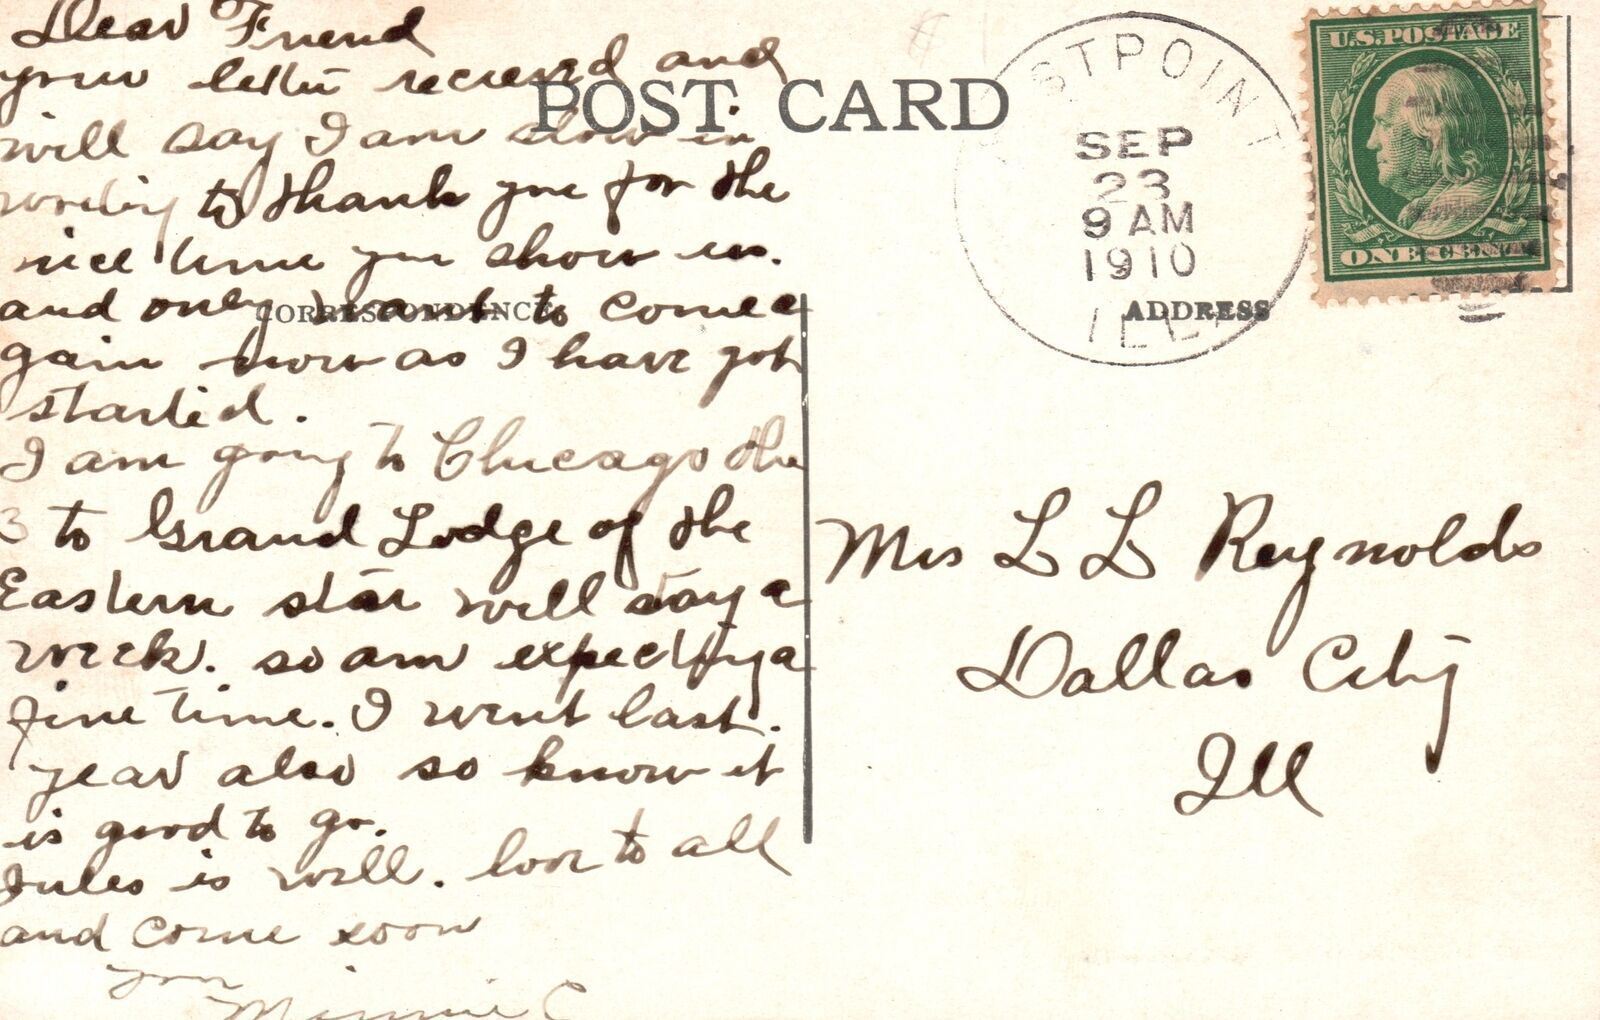 Dear Friend
your letter recieved and
will say I am slow in
to thank you for the
nice time you show us.
and only want to come a
gain now as I have got
started.
I am going to Chicago the
3 to Grand Lodge of the
Eastern star will stay a
week. so am expecting a
fine time. I went last.
year also so know it
is good to go.
Jules is well. love to all
and come soon
your
Minnie C
POST CARD
CORRESPONDENCE
STPOINT
SEP
23
9 AM
1910
ILL.
U.S. POSTAGE
ONE CENT
ADDRESS
Mrs L L Reynolds
Dallas City
Ill